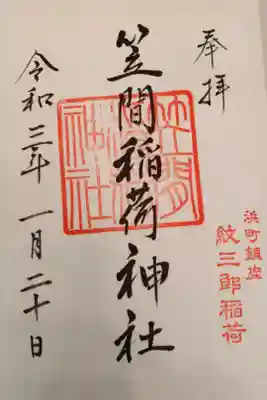 奉拝
浜町鎮座
紋三郎稲荷
笠間稲荷神社
令和三年一月二十日